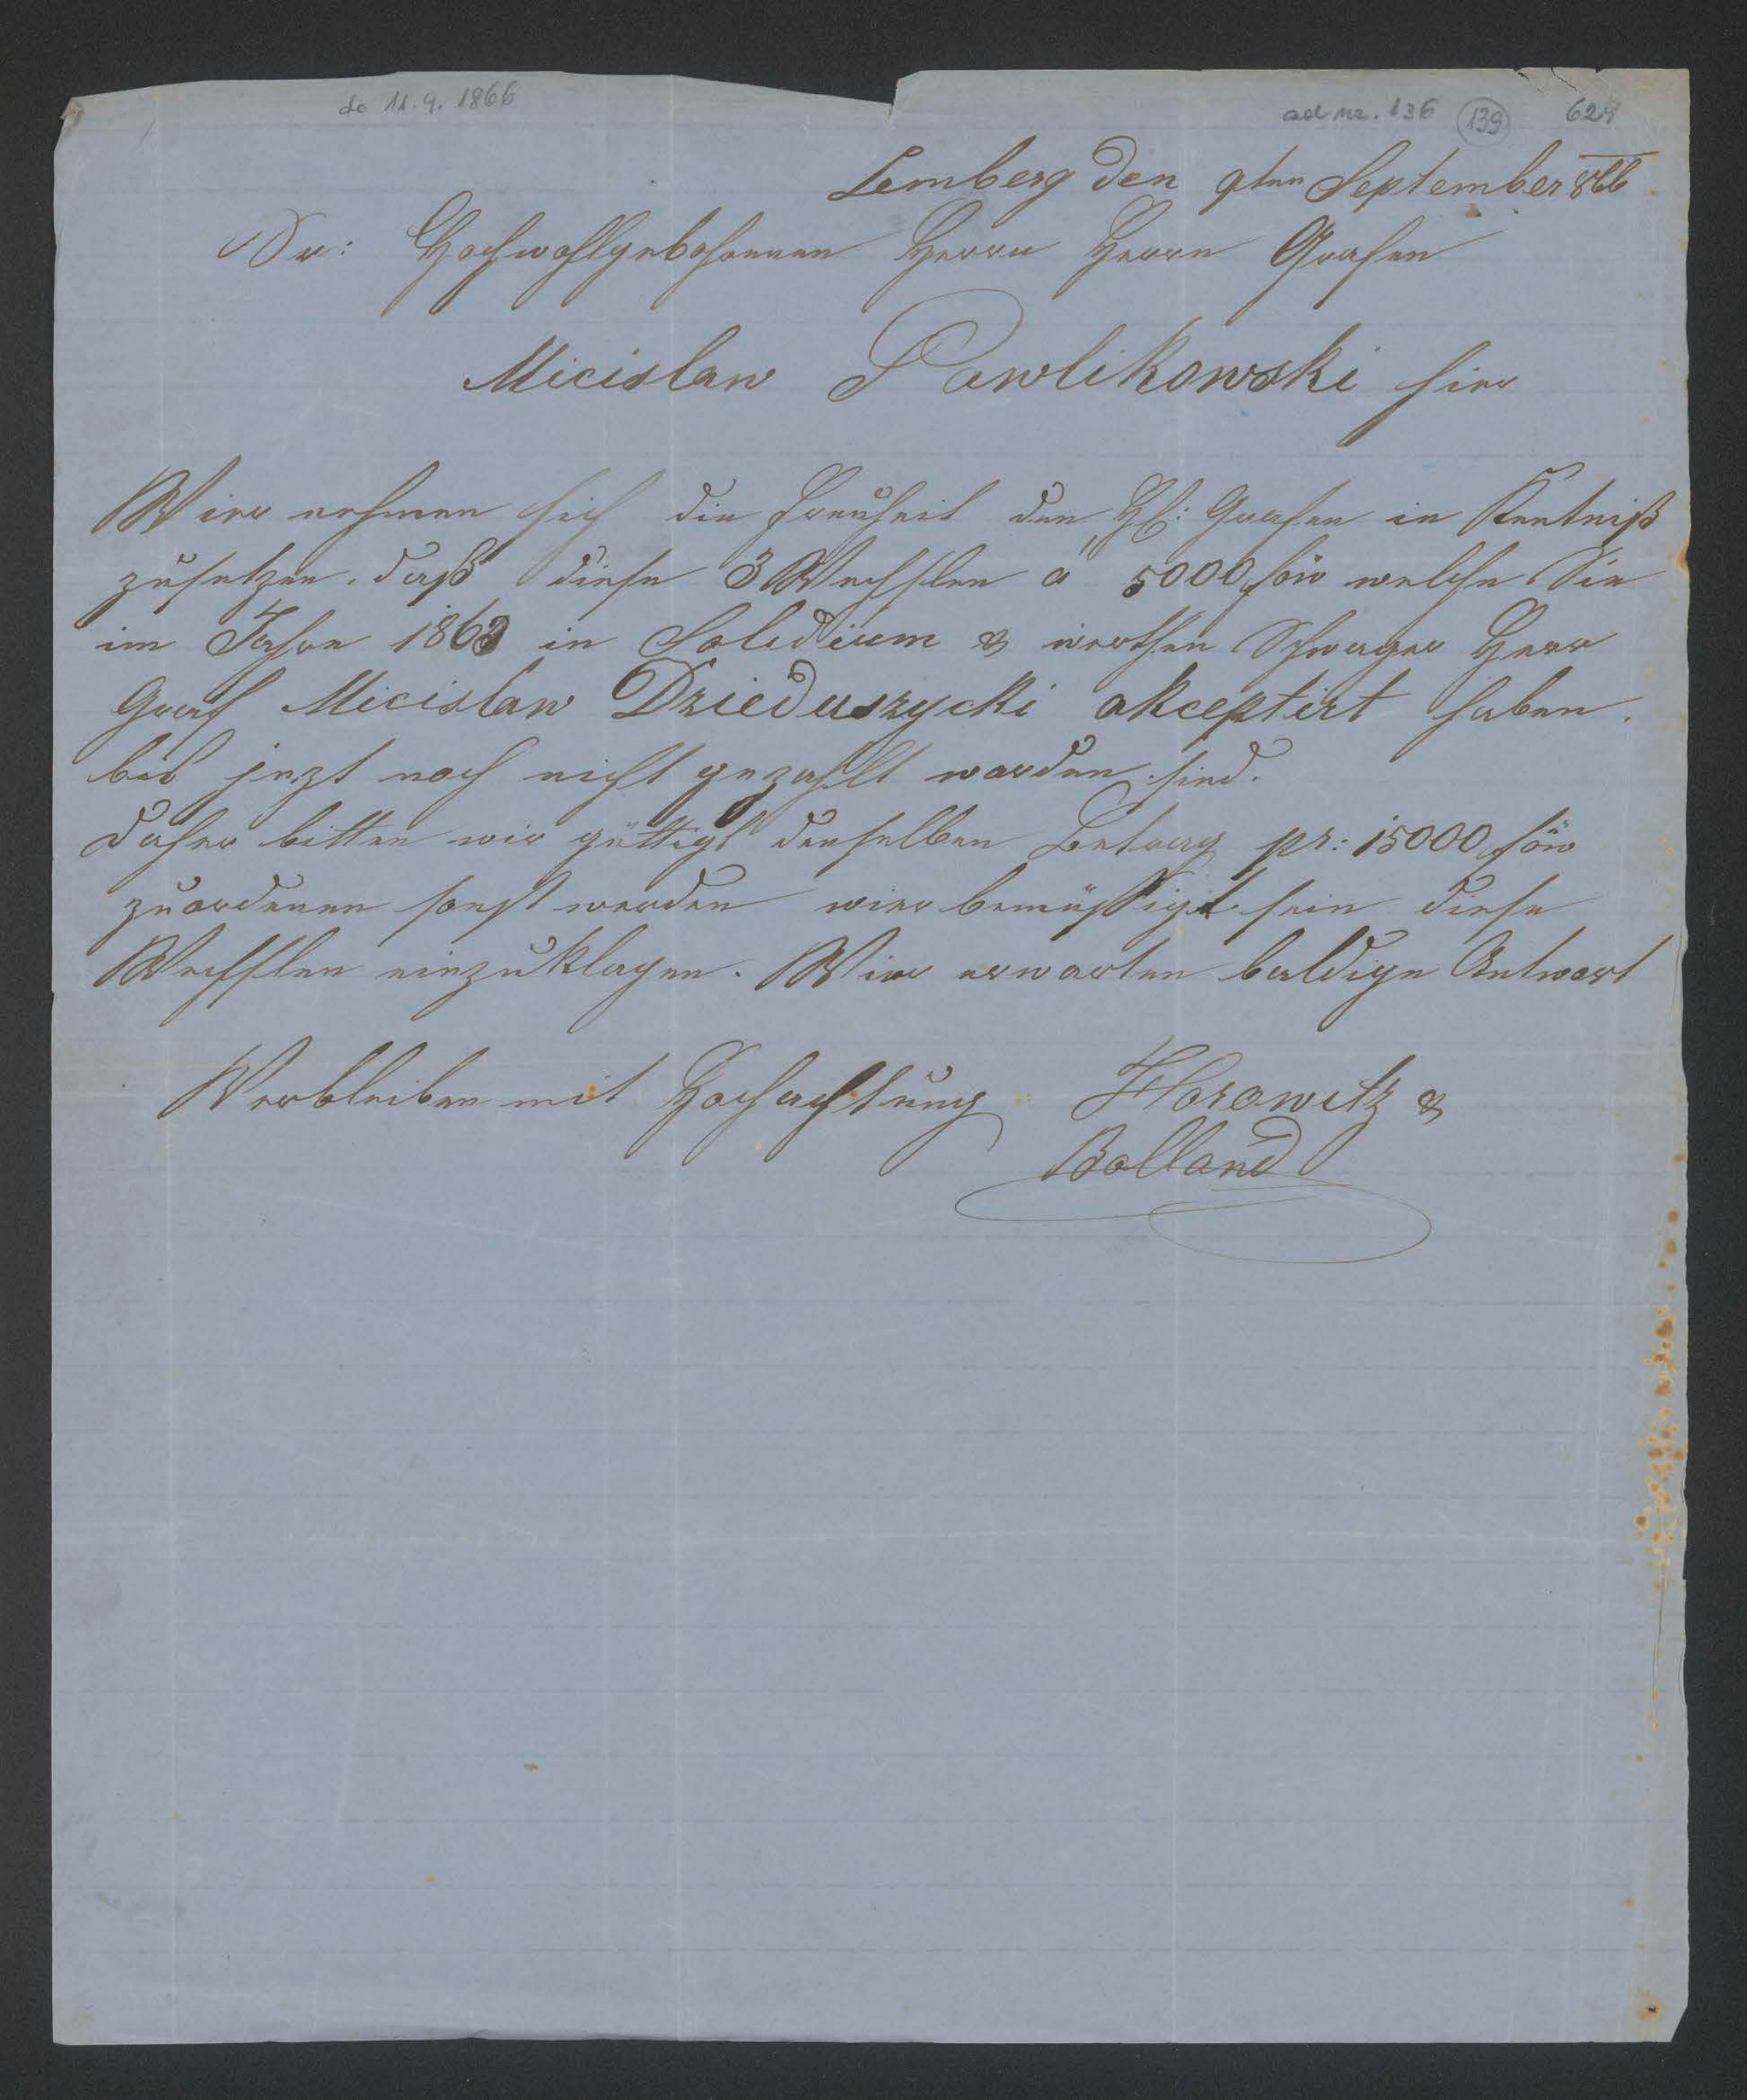 do 11.9.1866
ad nr. 136 139 624
Lemberg den 9ten September 866
Sr: Hochwohlgebohrenen Herrn Herrn Grafen
Micislaw Pawlikowski hier
Wier nehmen sich die Freuheit den H: Grafen in Kentniß
zusetzen, daß diese 3 Wechslen a 5000 föw welche Sie
im Jahre 1863 in Solidium & werthen Schwager Herr
Graf Micislaw Dzieduszycki akceptirt haben.
bis jezt noch nicht gezahlt worden sind.
Daher bitten wir güttigst denselben Betrag pr: 15000 föw
zuordenen sonst werden wier bemüssigt sein diese
Wechslen einzuklagen. Wier erwarten baldige Antwort
Verbleiben mit Hochachtung Horowitz &
Bolland